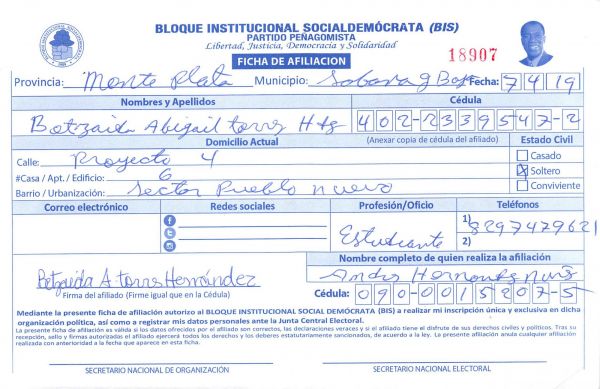 BLOQUE INSTITUCIONAL SOCIALDEMÓCRATA (BIS)
PARTIDO PEÑAGOMISTA
Libertad, Justicia, Democracia y Solidaridad
FICHA DE AFILIACION
18907
Provincia: Monte Plata Municipio: Sabana g Boya Fecha: 7 4 19
Nombres y Apellidos Cédula
Betzaida Abigail torres Hdz 402-2339547-2
Domicilio Actual (Anexar copia de cédula del afiliado) Estado Civil
Calle: Proyecto 4 Casado
#Casa / Apt. / Edificio: 6 Soltero
Barrio / Urbanización: Sector Pueblo nuevo Conviviente
Correo electrónico Redes sociales Profesión/Oficio Teléfonos
Estudiante 1) 8297479621
2)
Nombre completo de quien realiza la afiliación
Betzaida A torres Hernández Andrs Hernontes
Firma del afiliado (Firme igual que en la Cédula) Cédula: 090-0015207-5
Mediante la presente ficha de afiliación autorizo al BLOQUE INSTITUCIONAL SOCIAL DEMÓCRATA (BIS) a realizar mi inscripción única y exclusiva en dicha
organización política, así como a registrar mis datos personales ante la Junta Central Electoral.
La presente ficha de afiliación es válida si los datos ofrecidos por el afiliado son correctos, las declaraciones veraces y si el afiliado tiene el disfrute de sus derechos civiles y políticos. Tras su
recepción, sello y firmas autorizadas el afiliado ejercerá todos los derechos y los deberes estatutariamente sancionados, de acuerdo a la ley. La presente afiliación anula cualquier afiliación
realizada con anterioridad a la fecha que aparece en esta ficha.
SECRETARIO NACIONAL DE ORGANIZACIÓN SECRETARIO NACIONAL ELECTORAL